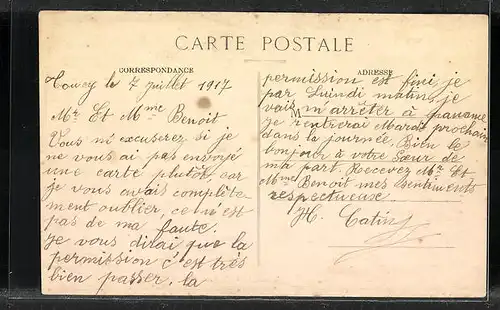 CARTE POSTALE
CORRESPONDANCE
Toucy le 7 juillet 1917
Mr Et Mme Benoit
Vous m'excuserez si je
ne vous ai pas envoyé
une carte plutôt car
je vous avais complète-
ment oublier, ce n'est
pas de ma faute.
Je vous dirai que la
permission c'est très
bien passer, la
ADRESSE
permission est fini je
par Luindi matin, je
vais m'arrêter à
je rentrerai Mardi prochain
dans la journée. Bien le
bonjour à votre Sœur de
ma part. Recever Mr Et
Mme Benoit mes Sentiments
respectueuse.
H. Catin